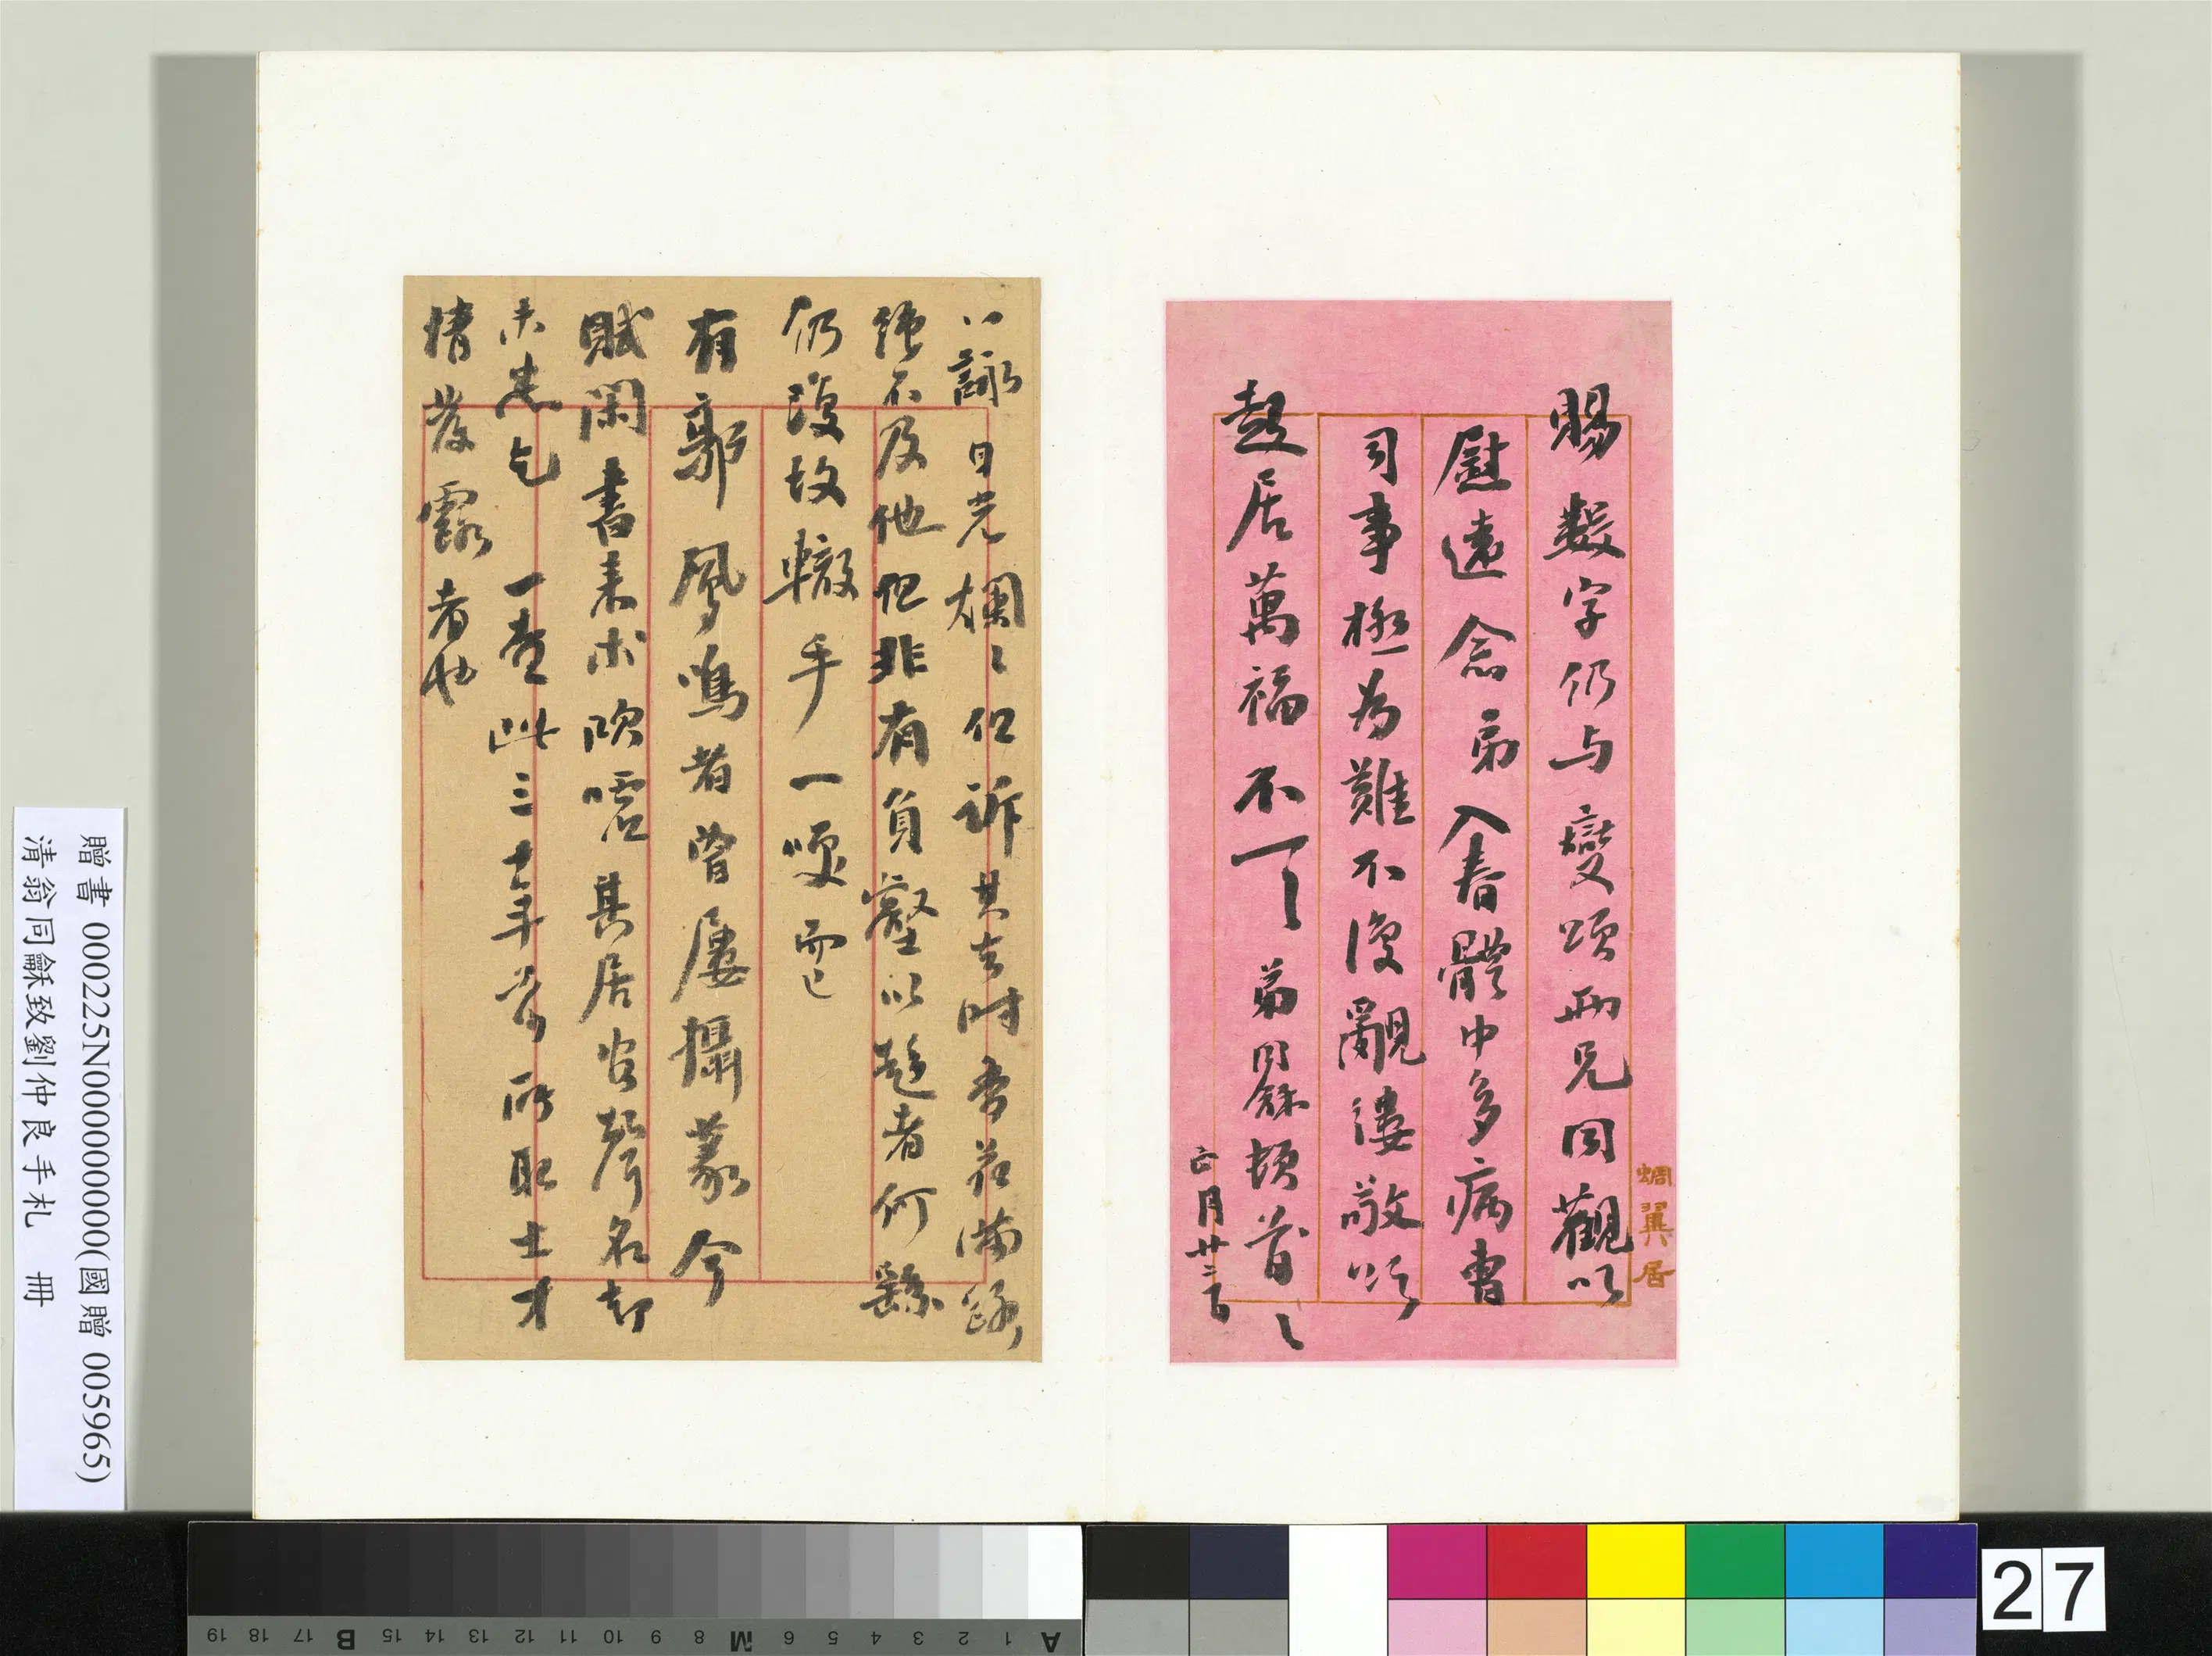 賜數字仍与變頌兩兄同觀以
慰遠念弟入春體中多病曹
司事極為難不復覼縷敬頌
起居萬福不一一弟同龢頓首〻
正月廿二日
蜩翼居
詠目光爛〻但訴其去時杏花滿
強不及他但非有負壑以趍者何懸
仍復故轍手一嘆而已
有郭鳳鳴者曾屢攝篆今
賦閑書來求吹噓其居官聲名却
未悉乞一查此三十年前所取士才
情發露者也
贈書 000225N000000000(國贈 005965)
清翁同龢致劉仲良手札 冊
A 1 2 3 4 5 6 M 8 9 10 11 12 13 14 15 B 17 18 19
27